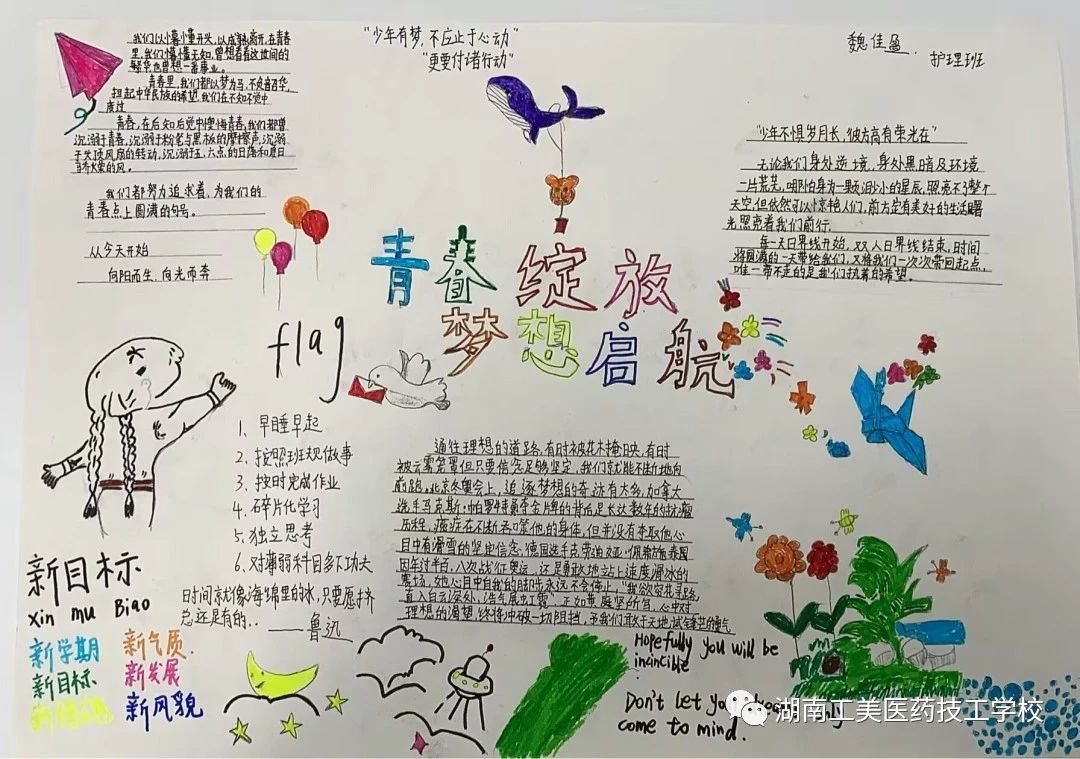 我们以懵懂开头,以成熟离开,在青春
里,我们懵懂无知,曾想看看这世间的
繁华,也曾想一番事业。
青春里,我们都以梦为马,不负韶华,
担起中华民族的希望,我们在不知不觉中
度过
青春,在后知后觉中懊悔青春,我们都曾
沉溺于青春,沉溺于粉笔与黑板的摩擦声,沉溺
于头顶风扇的转动,沉溺于五、六点的日落和夏日
的风。
我们都努力追求着,为我们的
青春点上圆满的句号。
从今天开始
向阳而生,向光而奔
"少年有梦,不应止于心动"
"更要付诸行动"
魏佳盈
护理班
"少年不惧岁月长,彼方尚有荣光在"
无论我们身处逆境,身处黑暗及环境
一片荒芜,哪怕身为一颗渺小的星辰,照亮不了整个
天空,但依然可以惊艳人们,前方定有美好的生活曙
光照亮着我们前行.
每一天日界线开始,又从日界线结束,时间
将圆满的一天带给我们,又将我们一次次带回起点,
唯一带不走的是我们执着的希望。
青春绽放
梦想启航
flag
1、早睡早起
2、按照班规做事
3、按时完成作业
4、碎片化学习
5、独立思考
6、对薄弱科目多下功夫
时间就像海绵里的水,只要愿挤
总还是有的..
——鲁迅
通往理想的道路,有时被花木掩映,有时
被云雾笼罩但只要信念足够坚定,我们就能不断地向
前跑,北京冬奥会上,追逐梦想的奇迹有太多,加拿大
选手马克斯·帕罗特勇夺金牌的背后是长达数年的抗癌
历程,癌症在不断吞噬他的身体,但并没有夺取他心
目中有滑雪的坚定信念,德国选手克劳迪娅·佩希施泰因
因年过半百,八次战征奥运,还是勇敢地站上速度滑冰的
赛场,她心目中自我的脚步永远不会停止,"我欲穿花寻路,
直入白云深处,浩气展虹霓",正如黄庭坚所写,心中对
理想的渴望,终将冲破一切阻挡,予我们敢于天地试锋芒的勇气
新目标
xin mu Biao
新学期 新气质
新目标 新发展
新风貌
Hopefully you will be
incincible
Don't let your
come to mind.
湖南工美医药技工学校